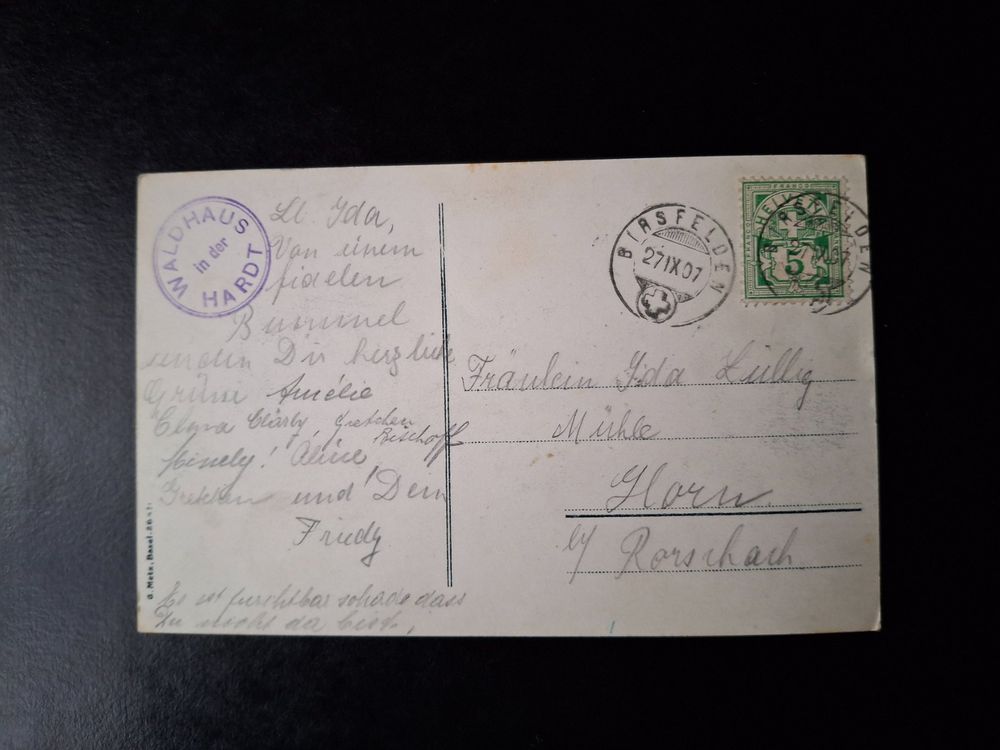 WALDHAUS
in der
HARDT
Lb. Ida,
Von einem
fidelen
Bummel
senden Dir herzliche
Grüsse Amélie
Clara Clärly Gretchen
Bischoff
Minely! Aline!
Gretchen und Dein
Friedy
Es ist furchtbar schade dass
Du nicht da bist,
G. Metz, Basel
BIRSFELDEN
27 IX 07
FRANCO
HELVETIA
5
Fräulein Ida Lüllig
Mühle
Horn
b/ Rorschach